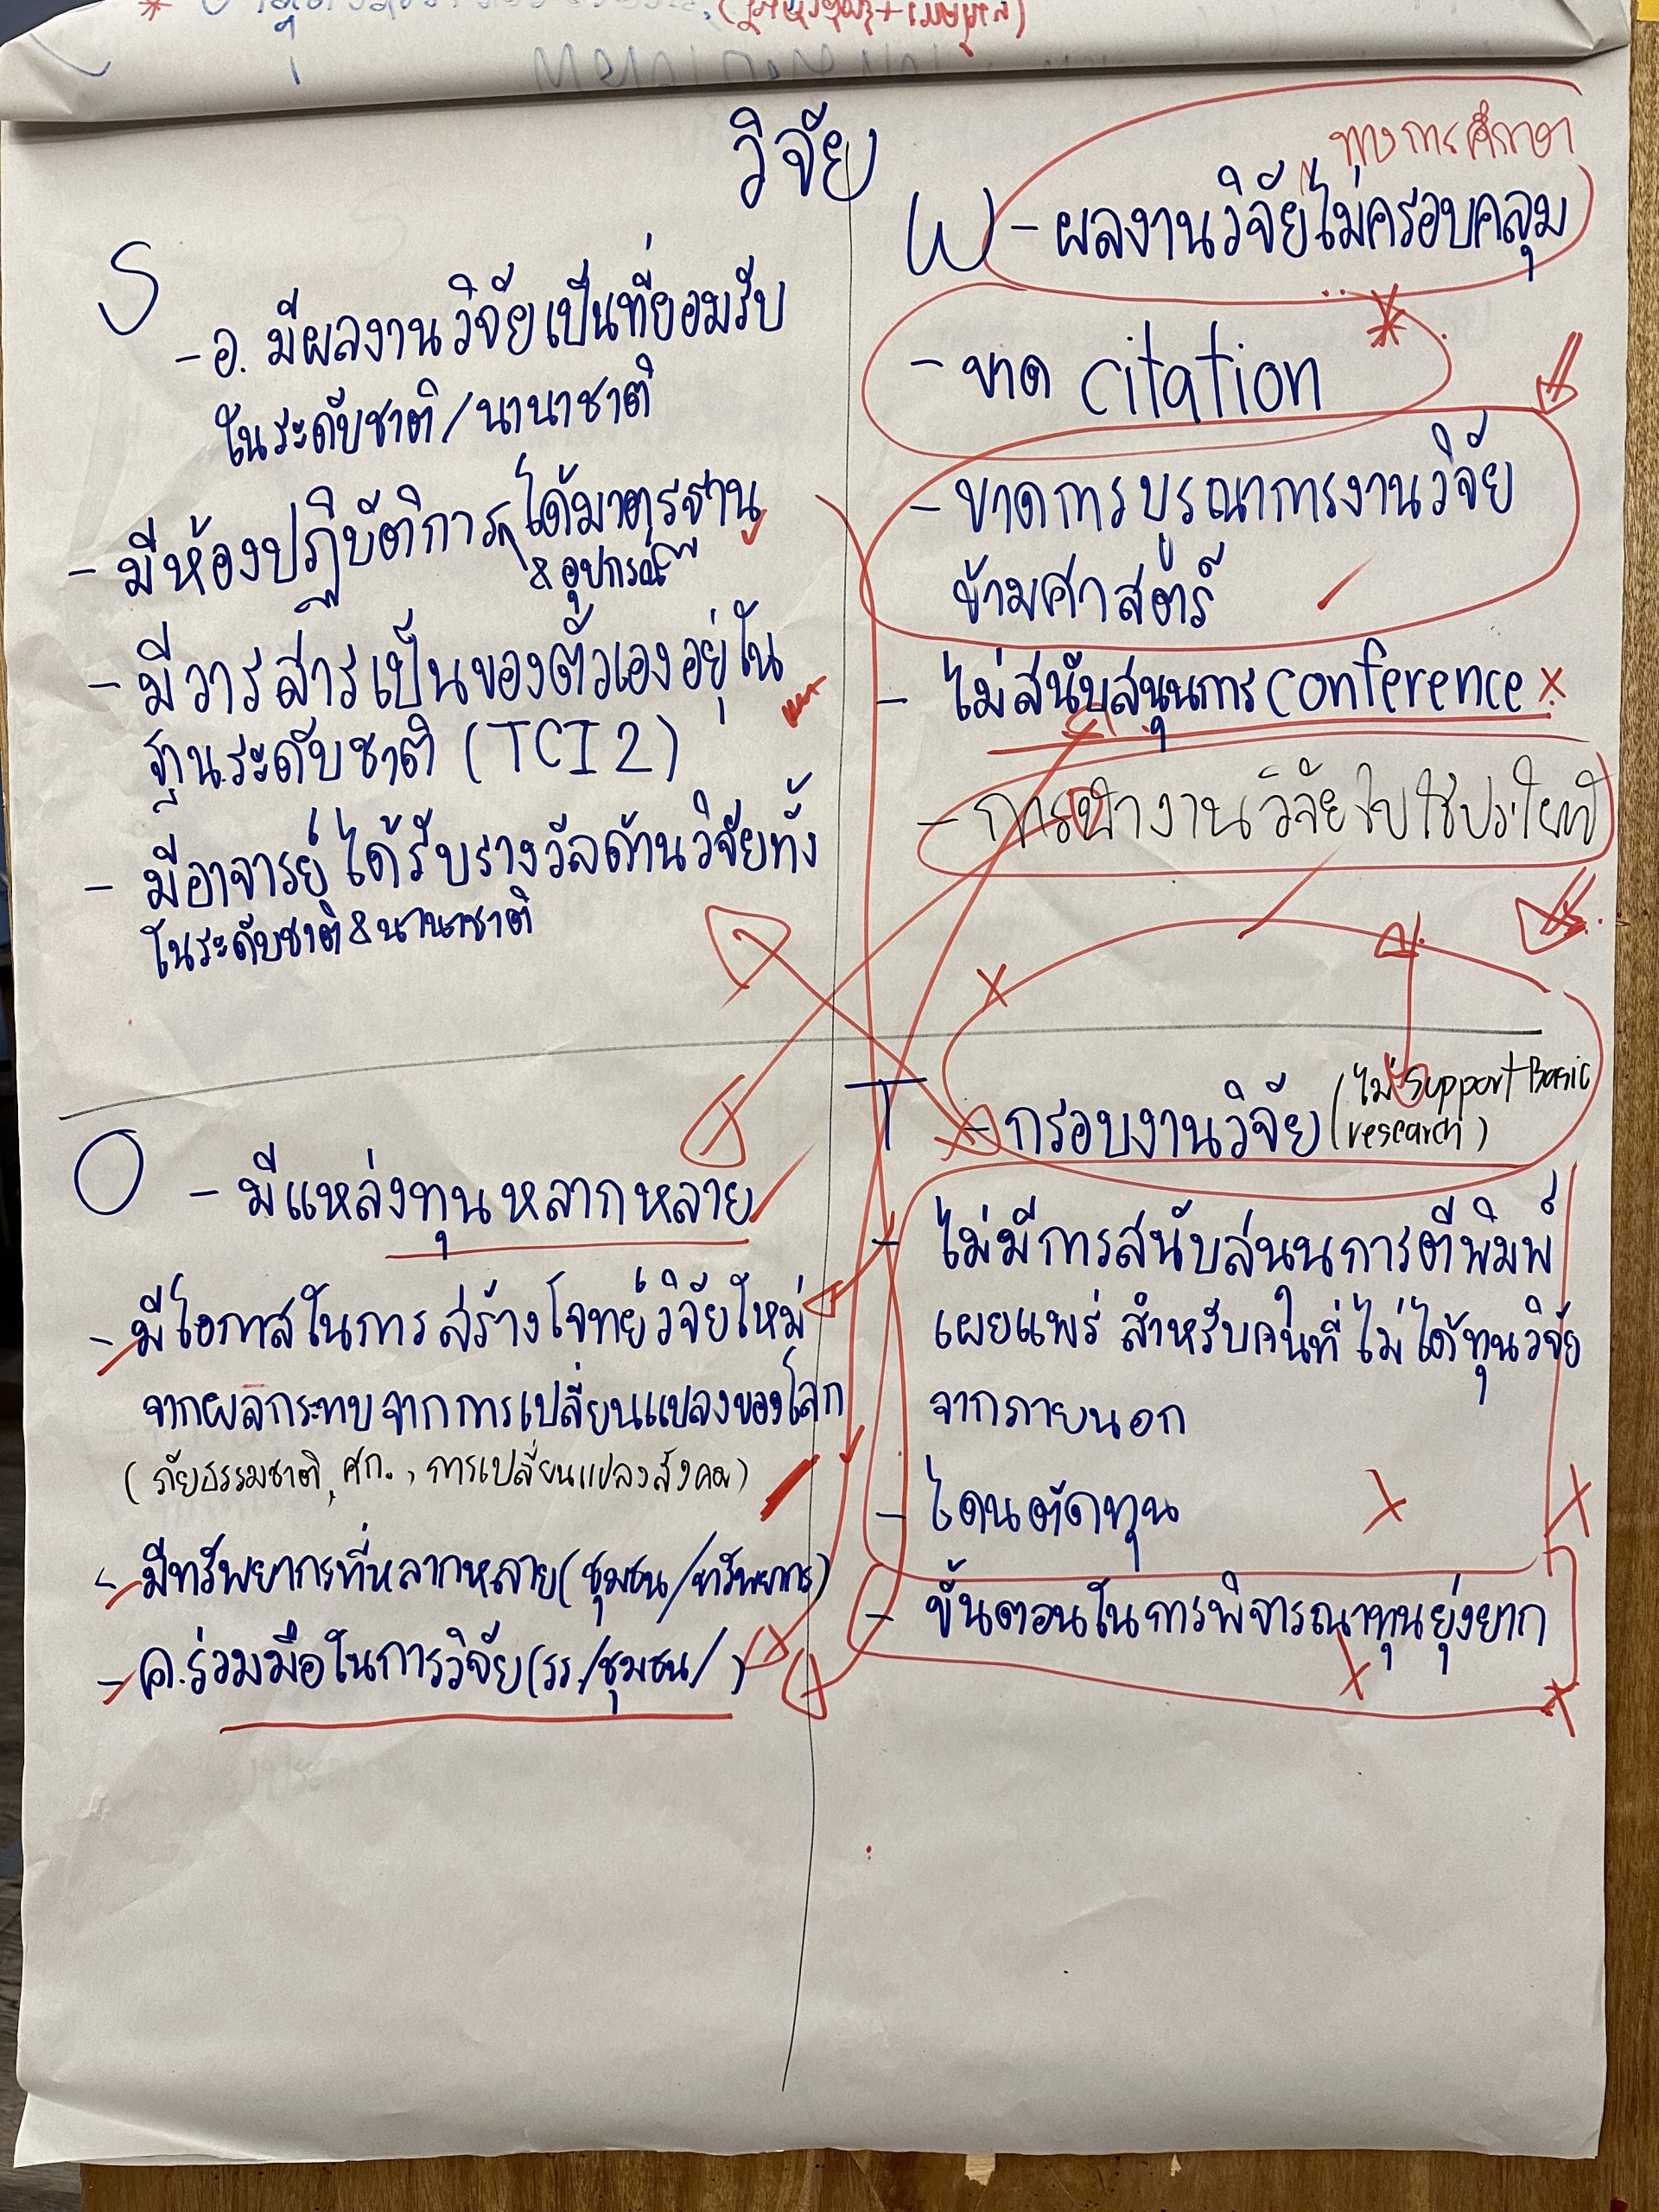 วิจัย
S
- อ. มีผลงานวิจัยเป็นที่ยอมรับ
ในระดับชาติ/นานาชาติ
- มีห้องปฏิบัติการ ได้มาตรฐาน
& อุปกรณ์
- มีวารสารเป็นของตัวเองอยู่ใน
ฐานระดับชาติ (TCI 2)
- มีอาจารย์ได้รับรางวัลด้านวิจัยทั้ง
ในระดับชาติ & นานาชาติ
ทางการศึกษา
W - ผลงานวิจัยไม่ครอบคลุม
- ขาด citation
- ขาดการบูรณาการงานวิจัย
ข้ามศาสตร์
- ไม่สนับสนุนการ conference
- การนำงานวิจัยไปใช้ประโยชน์
O - มีแหล่งทุนหลากหลาย
- มีโอกาสในการสร้างโจทย์วิจัยใหม่
จากผลกระทบจากการเปลี่ยนแปลงของโลก
(ภัยธรรมชาติ, ศก., การเปลี่ยนแปลงสังคม)
- มีทรัพยากรที่หลากหลาย (ชุมชน/ทรัพยากร)
- ค.ร่วมมือในการวิจัย (รร./ชุมชน/ )
T - กรอบงานวิจัย (ไม่ support Basic
research)
- ไม่มีการสนับสนนการตีพิมพ์
เผยแพร่ สำหรับคนที่ไม่ได้ทุนวิจัย
จากภายนอก
- โดนตัดทุน
- ขั้นตอนในการพิจารณาทุนยุ่งยาก